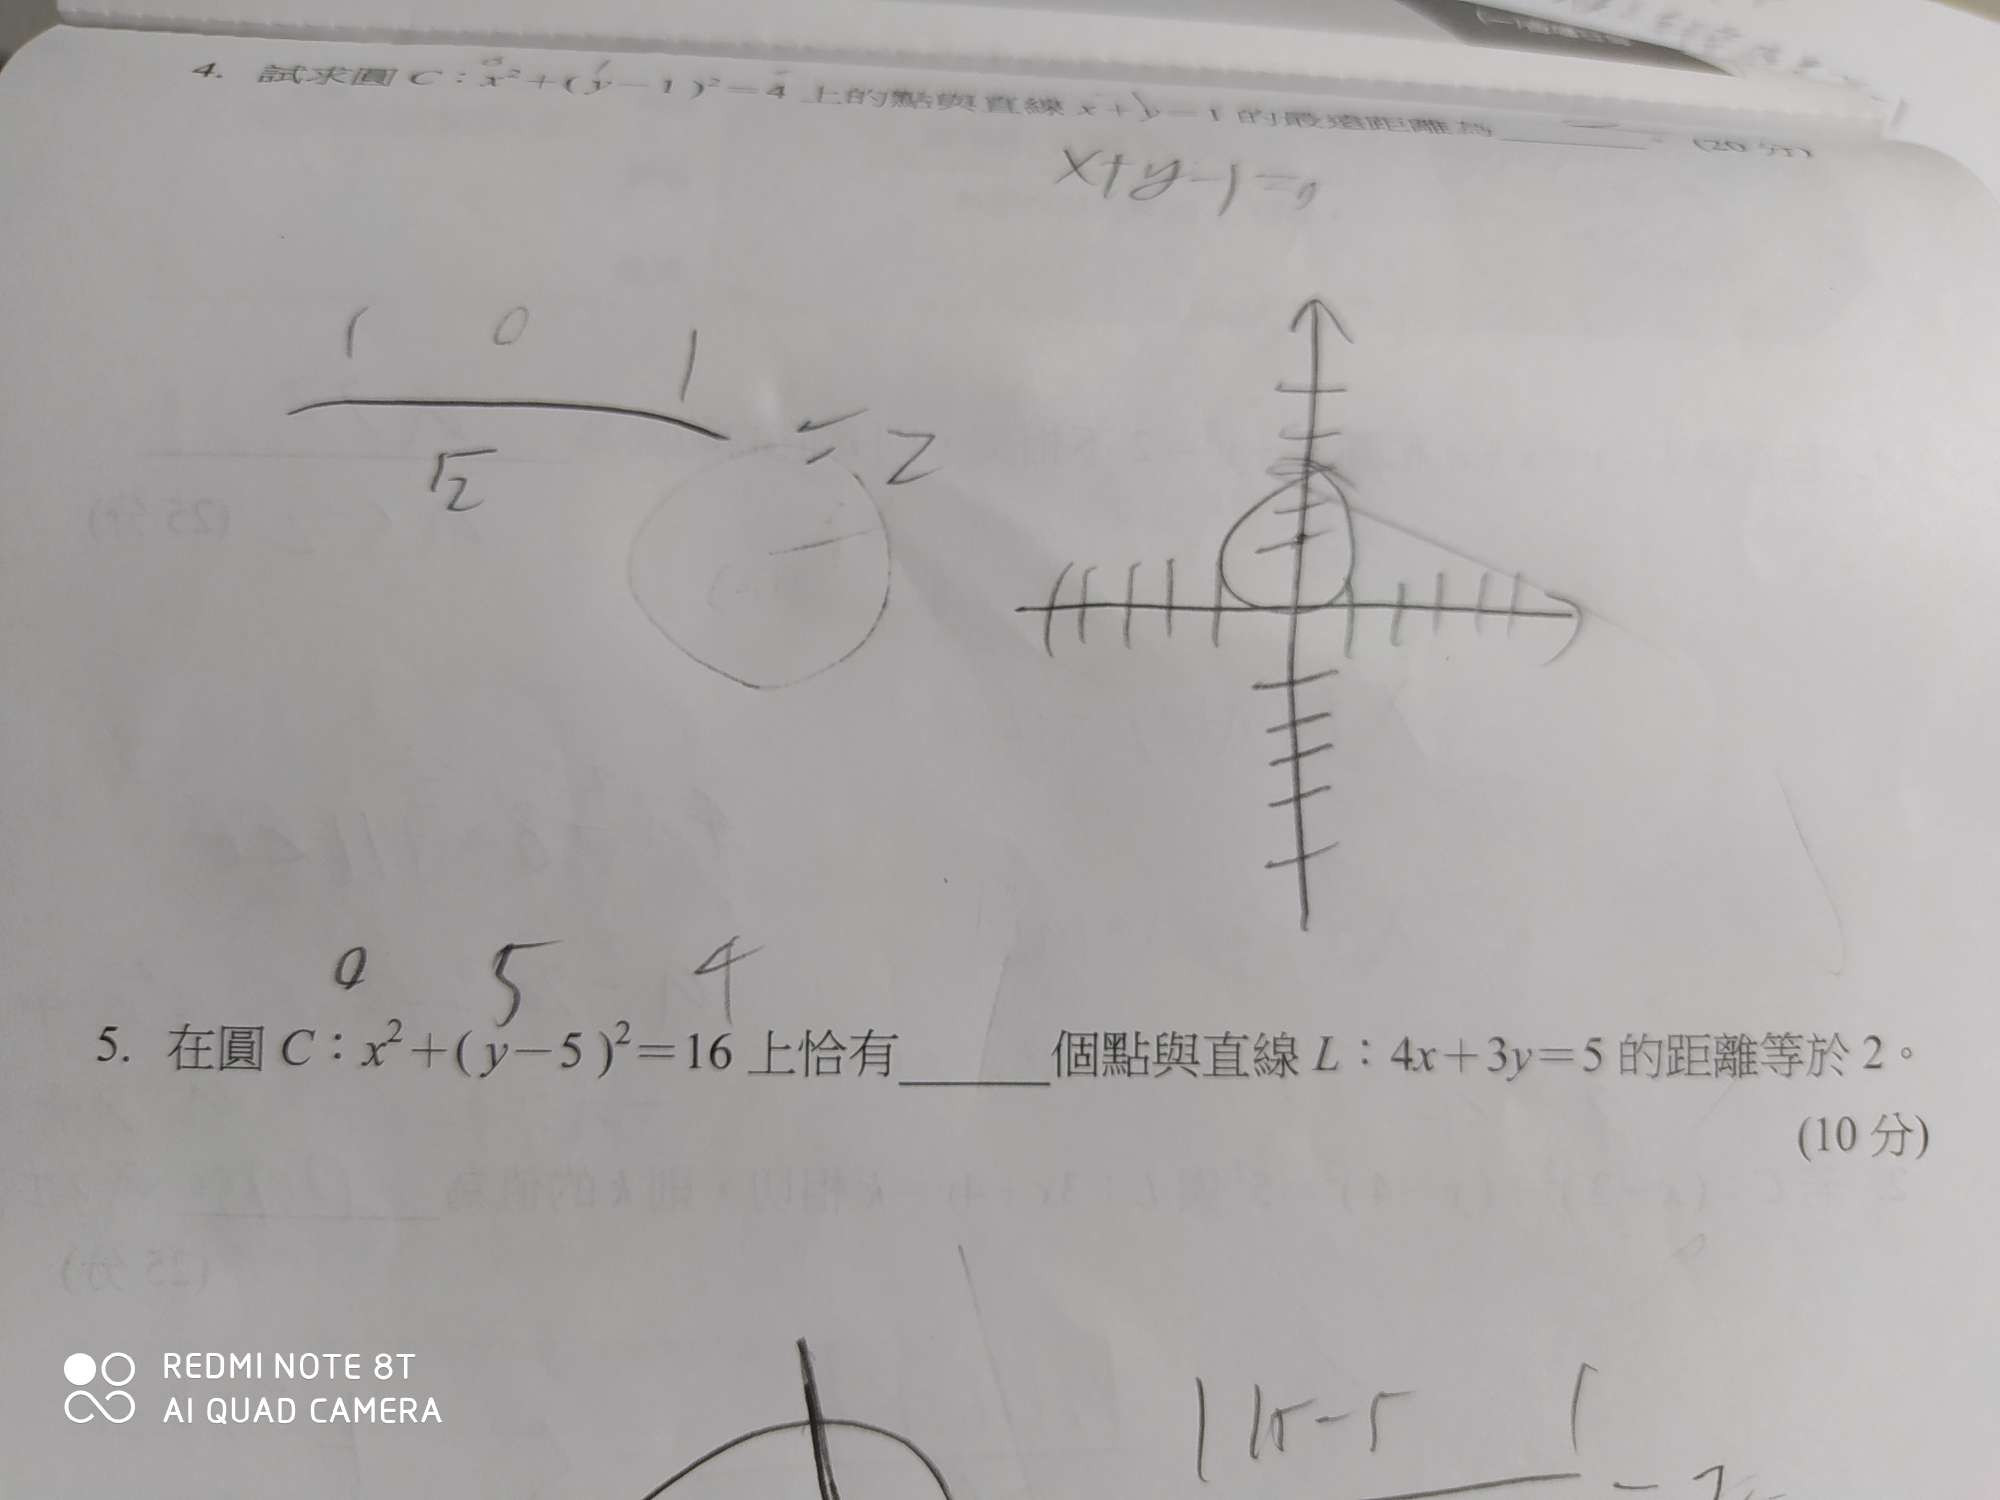 4. 試求圓 C：x²+(y−1)²=4 上的點與直線 x+y=1 的最遠距離為______。(20 分)
x+y-1=0
1 0 1
√2
= 2
0 5 4
5. 在圓 C：x²+(y−5)²=16 上恰有______個點與直線 L：4x+3y=5 的距離等於 2。
(10 分)
REDMI NOTE 8T
AI QUAD CAMERA
|15-5|